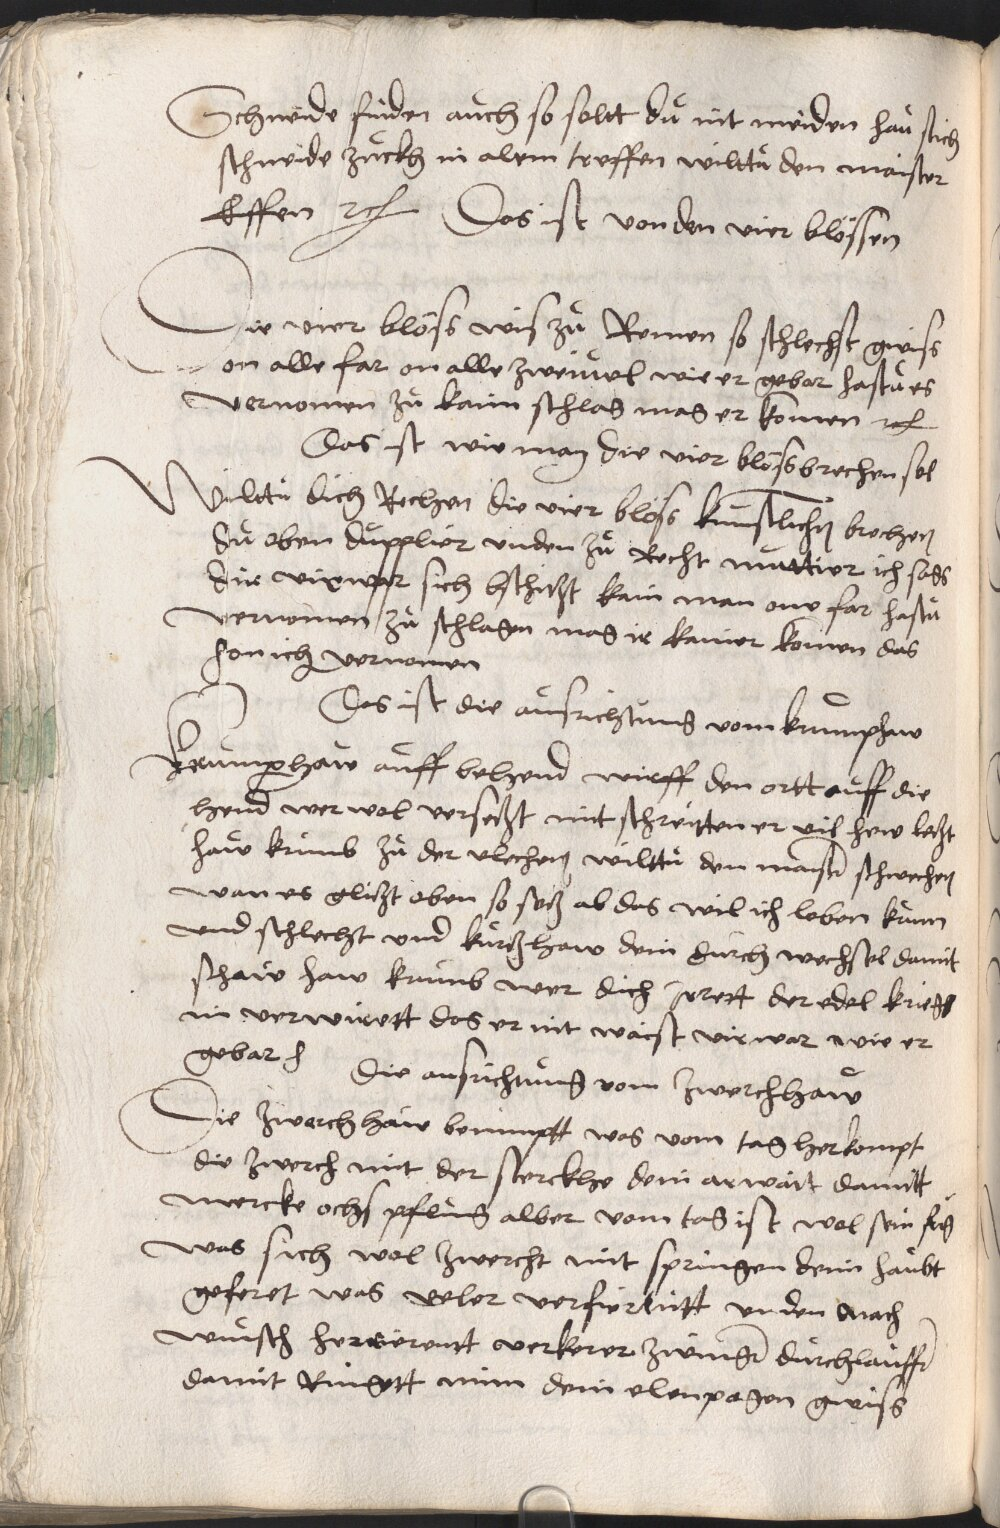 Schneide finden auch so soltt du nit meiden hau stich
schneide zuckh in alem treffen wilttu den maister
Effen rc Das ist von den vier blössen
Die vier blöss wis zu Remen so schlechst gwiss
on alle far on alle zweiuel wie er gebar hastu es
vernomen zu kaim schlag mag er komen rc
Das ist wie man die vier blöss brechen sol
Wilttu dich Rechen die vier blöss kunstlichen brechen
Du oben dupplier unden zu Recht muttier ich sags
dir virwar sich bschitzt kain man one far hastu
vernomen zu schlagen mag ir kainer komen das
hon ich vernomen
Das ist die ausrichtung vom krumphaw
Krumphaw auff behend wirff den ortt auff die
hend wer wol versetzt mit schreitten er vil hew letzt
haw krumb zu der flechen wilttu den maister schwechen
wan es glitzt oben so setz ab das wil ich loben krum
und schlecht und kurtzhaw dem durch wechsel damit
schaw haw krumb wer dich Irrett der edel krieg
in verwirett das er nit waist virwar wie er
gebar
Die ausrichtung vom Zwerchhaw
Die Zwerchhaw benimptt was vom tag herkompt
die zwerch mit der sterckhe dein arwait damitt
mercke ochs pflug alber vom tag ist wol sein fug
was sich wol zwercht mit springen dem haubt
geferet was veler verfiertnitt unden nach
wunsch herrierentt verkerer zwinger durchlauffer
damit Ringett nim dem elenpogen gwiss